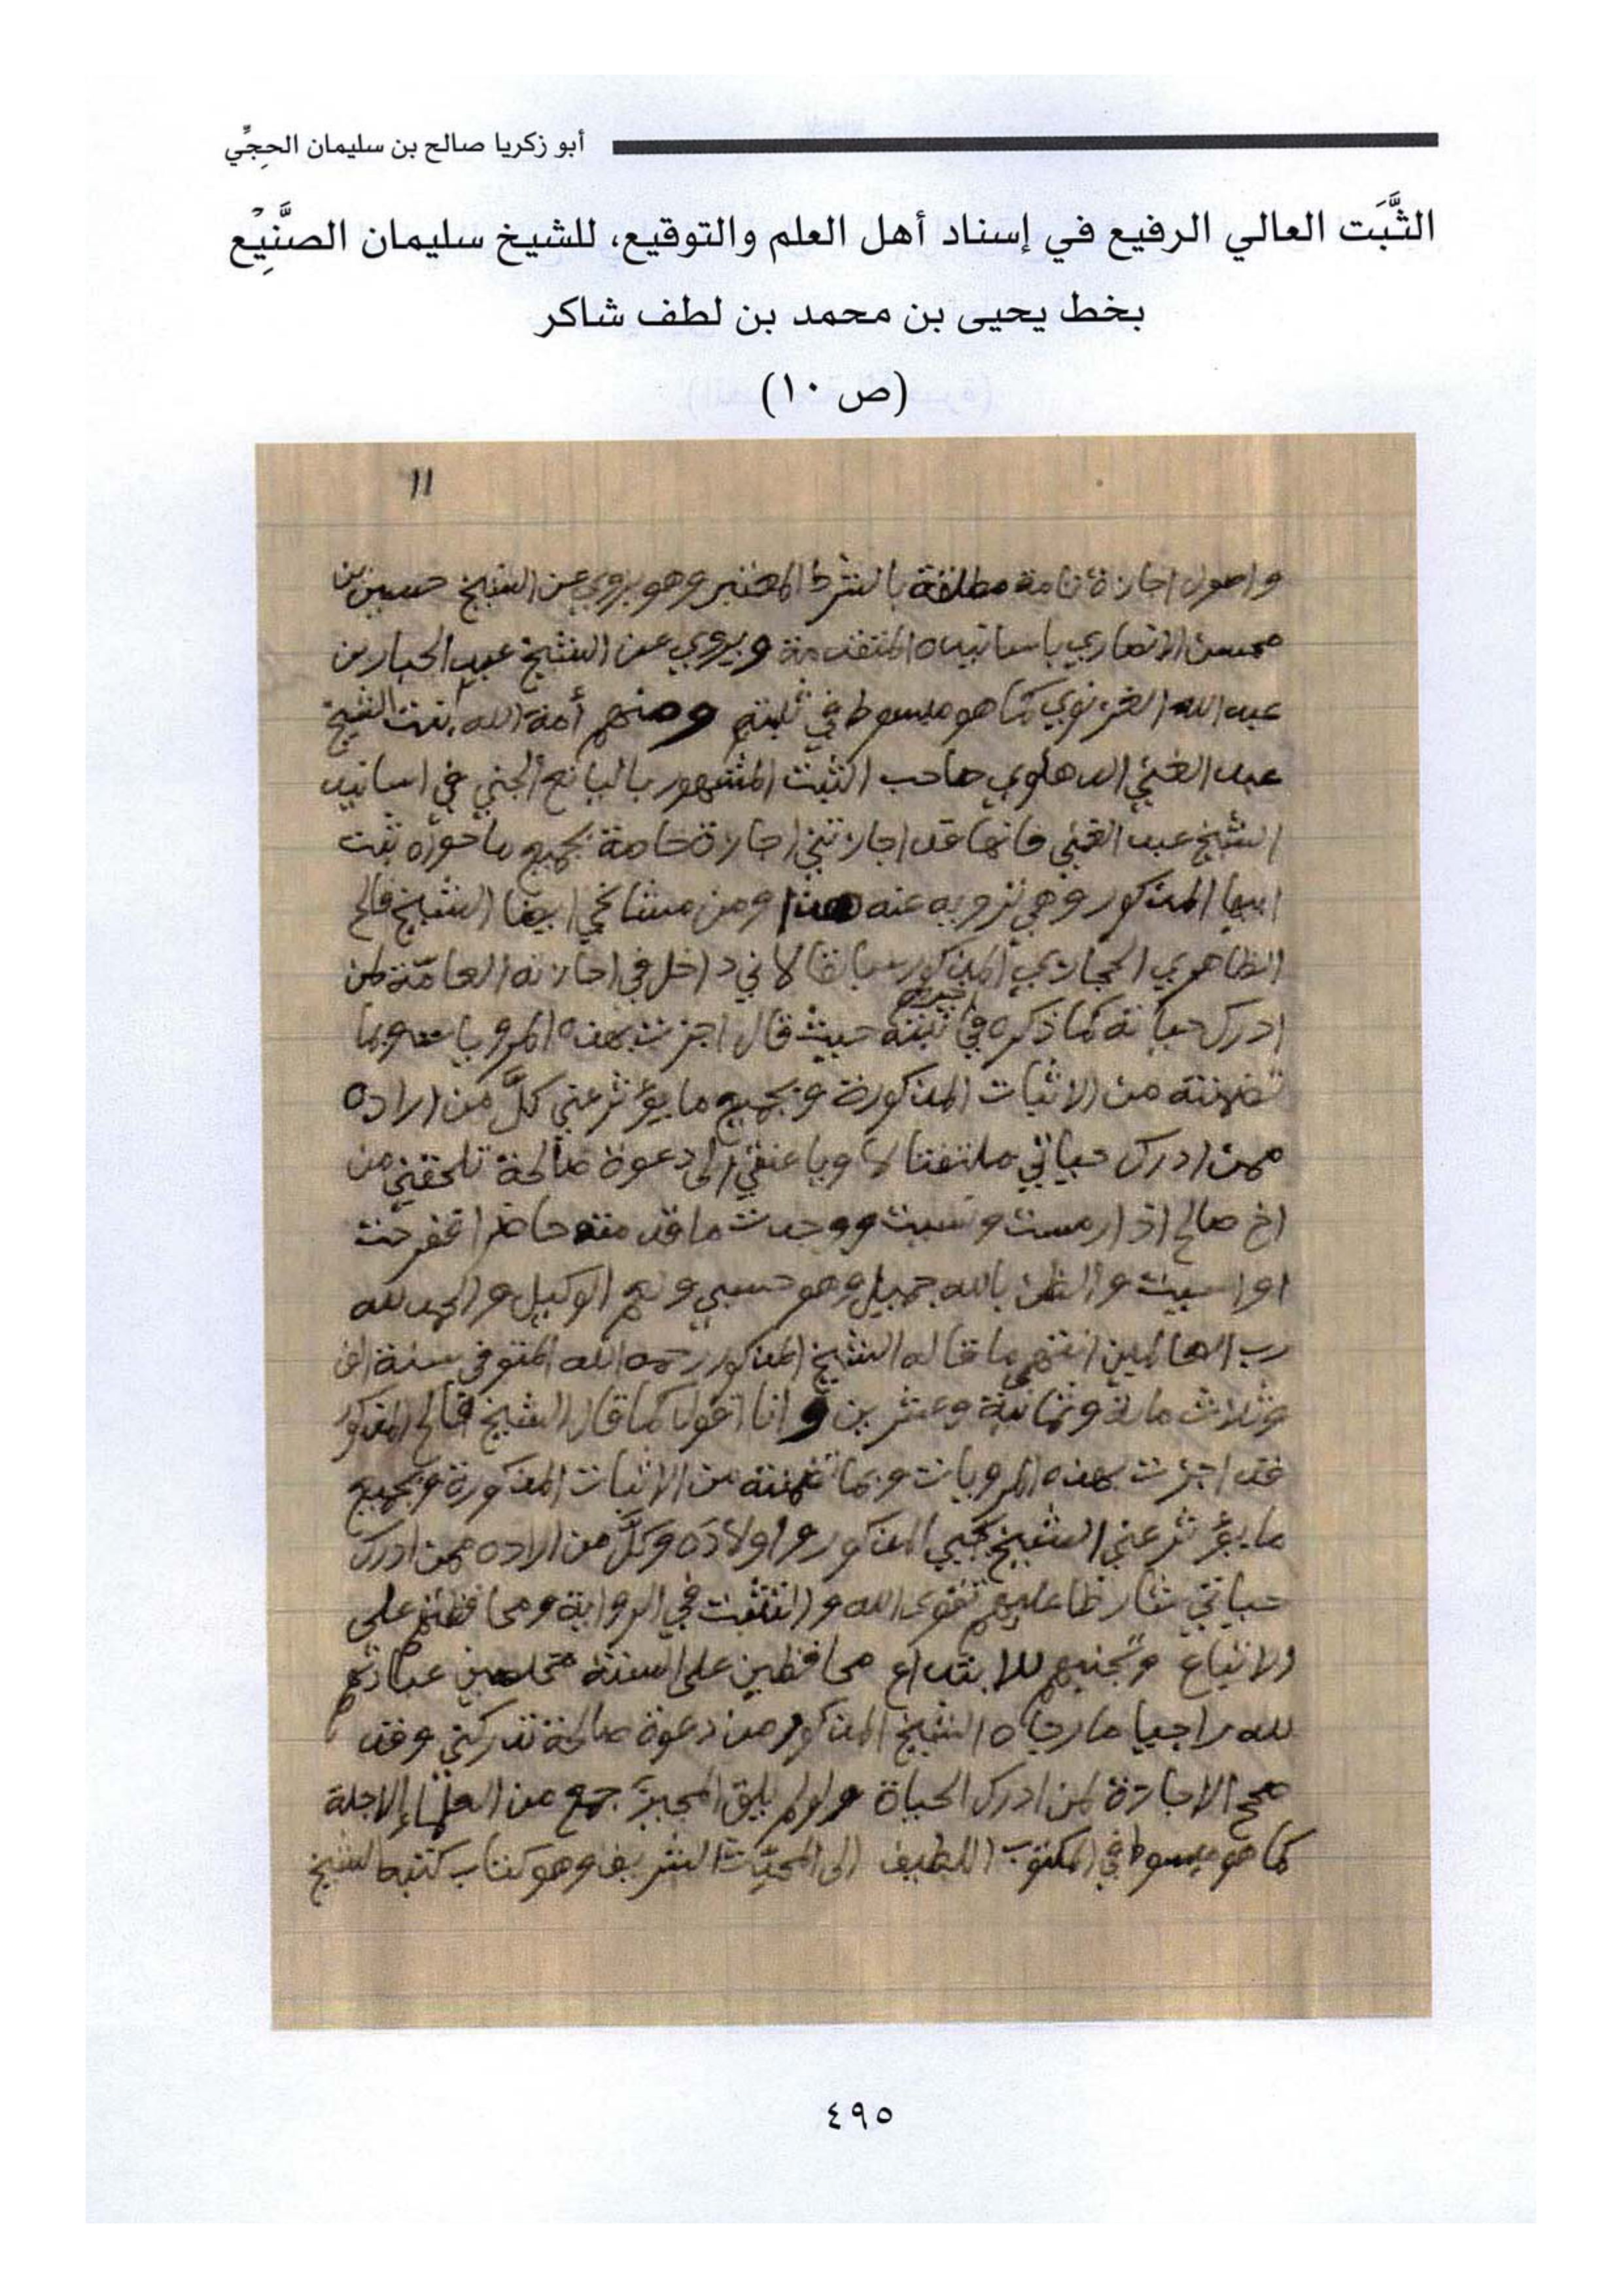 أبو زكريا صالح بن سليمان الحِجِّي
الثَّبَت العالي الرفيع في إسناد أهل العلم والتوقيع، للشيخ سليمان الصنَّيِع
بخط يحيى بن محمد بن لطف شاكر
(ص ١٠)
١١
واصوله اجازة تامة مطلقة بالشرط المعتبر وهو يروي عن الشيخ حسين بن
محسن الانصاري باسانيده المتقدمة ويروي عن الشيخ عبد الجبار بن
عبد الله الغزنوي كما هو مبسوط في ثبته ومنهم أمة الله بنت الشيخ
عبد الغني الدهلوي صاحب الثبت المشهور باليانع الجني في اسانيد
الشيخ عبد الغني فانها قد اجازتني اجازة خاصة بجميع ما حواه ثبت
ابيها المذكور وهي ترويه عنه هذا ومن مشائخي ايضا الشيخ فالح
الظاهري الحجازي المذكور سابقا لاني داخل في اجازته العامة لمن
ادرك حياته كما ذكره في ثبته حيث قال اجزت بهذه المرويات وبما
تضمنته من الاثبات المذكورة وبجميع ما يؤثر عني كلَّ من اراده
ممن ادرك حياتي ملتفتا الى دعوة صالحة تلحقني من
اخ صالح اذا رمست ونسيت ووجدت ما قدمته حاضرا
او اسيت والظن بالله جميل وهو حسبي ونعم الوكيل والحمد لله
رب العالمين انتهى ما قاله الشيخ المذكور رحمه الله المتوفى سنة الف
وثلاث مائة وثمانية وعشرين وانا اقول كما قال الشيخ فالح المذكور
قد اجزت بهذه المرويات وبما تضمنته من الاثبات المذكورة وبجميع
ما يؤثر عني الشيخ يحيى المذكور واولاده وكلَّ من اراده ممن ادرك
حياتي شارطا عليهم تقوى الله والتثبت في الرواية ومحافظتهم على
الاتباع وتجنبهم للابتداع محافظين على السنة مخلصين عبادتهم
لله راجيا ما رجاه الشيخ المذكور من دعوة صالحة تدركني وقد
صحح الاجازة لمن ادرك الحياة ولو لم يلق المجيز جمع من العلماء الاجلة
كما هو مبسوط في المكتوب اللطيف الى المحدث الشريف وهو كتاب كتبه الشيخ
٤٩٥